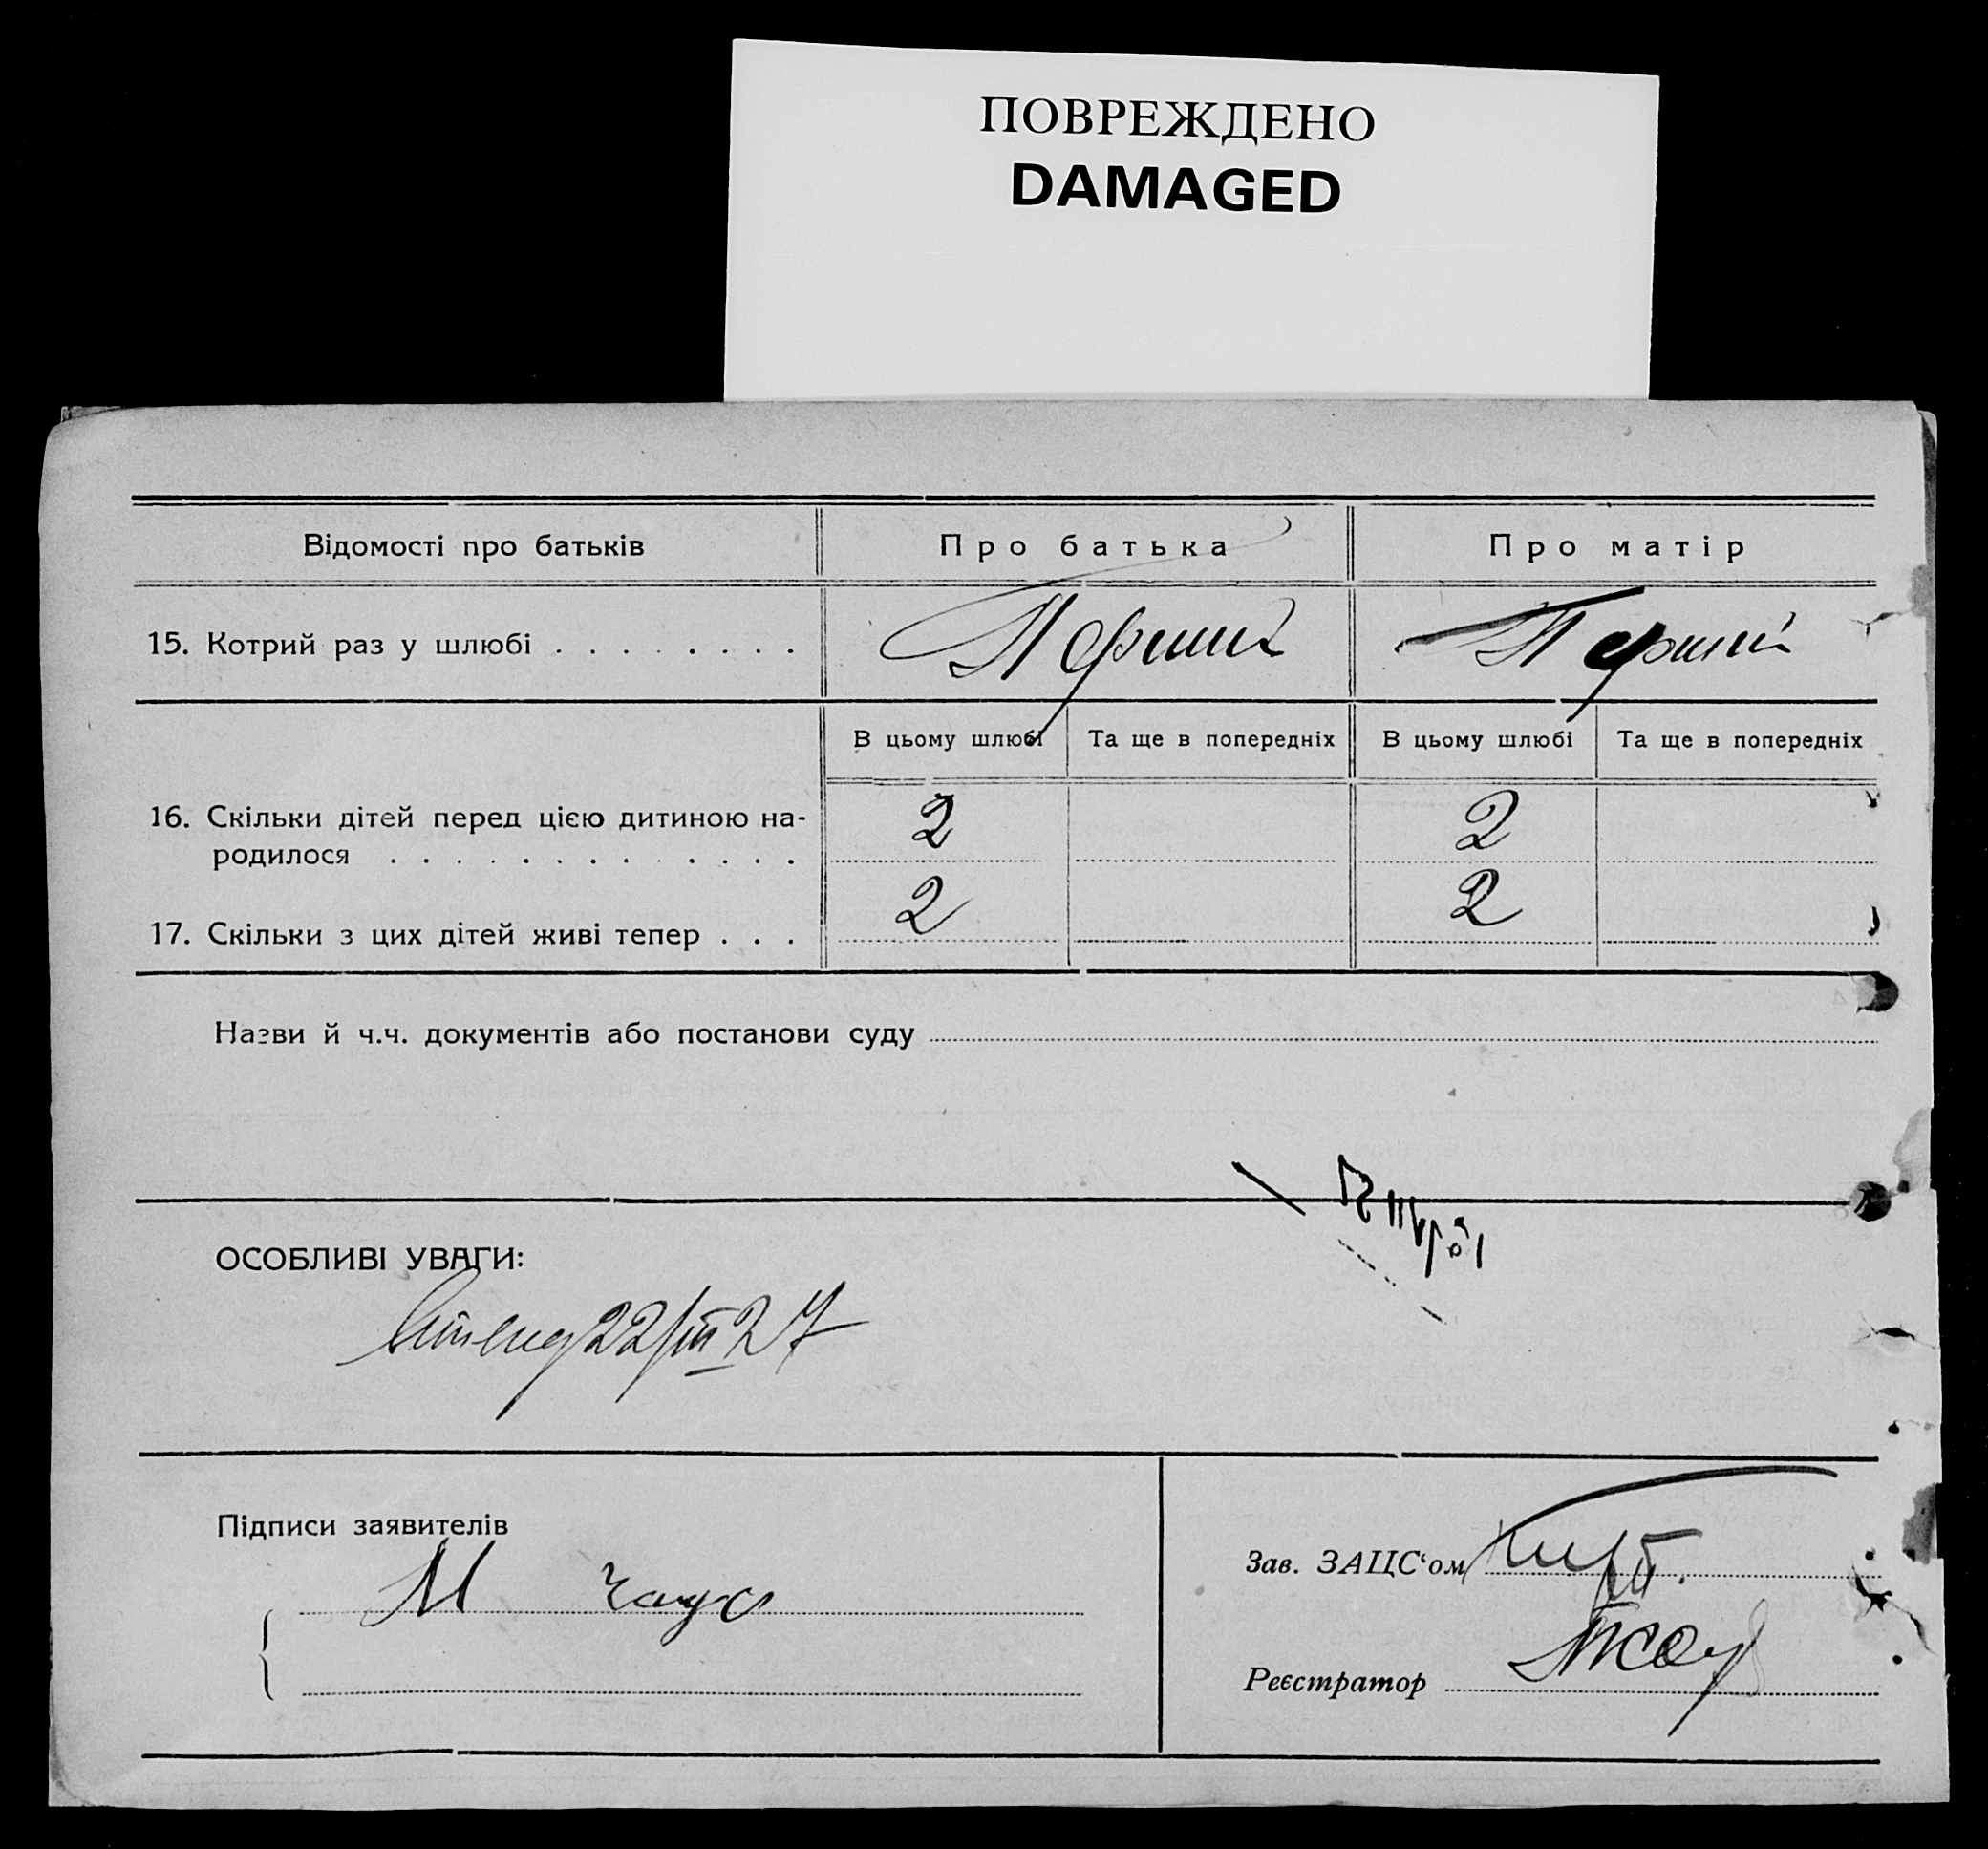 ПОВРЕЖДЕНО
DAMAGED
Відомості про батьків Про батька Про матір
15. Котрий раз у шлюбі . . . . . . . . Перший Перший
В цьому шлюбі Та ще в попередніх В цьому шлюбі Та ще в попередніх
16. Скільки дітей перед цією дитиною на-
родилося . . . . . . . . . . . . . 2 2
17. Скільки з цих дітей живі тепер . . . 2 2
Назви й ч.ч. документів або постанови суду
ОСОБЛИВІ УВАГИ:
22/III 27
Підписи заявителів
М
Зав. ЗАЦС‘ом
Реєстратор